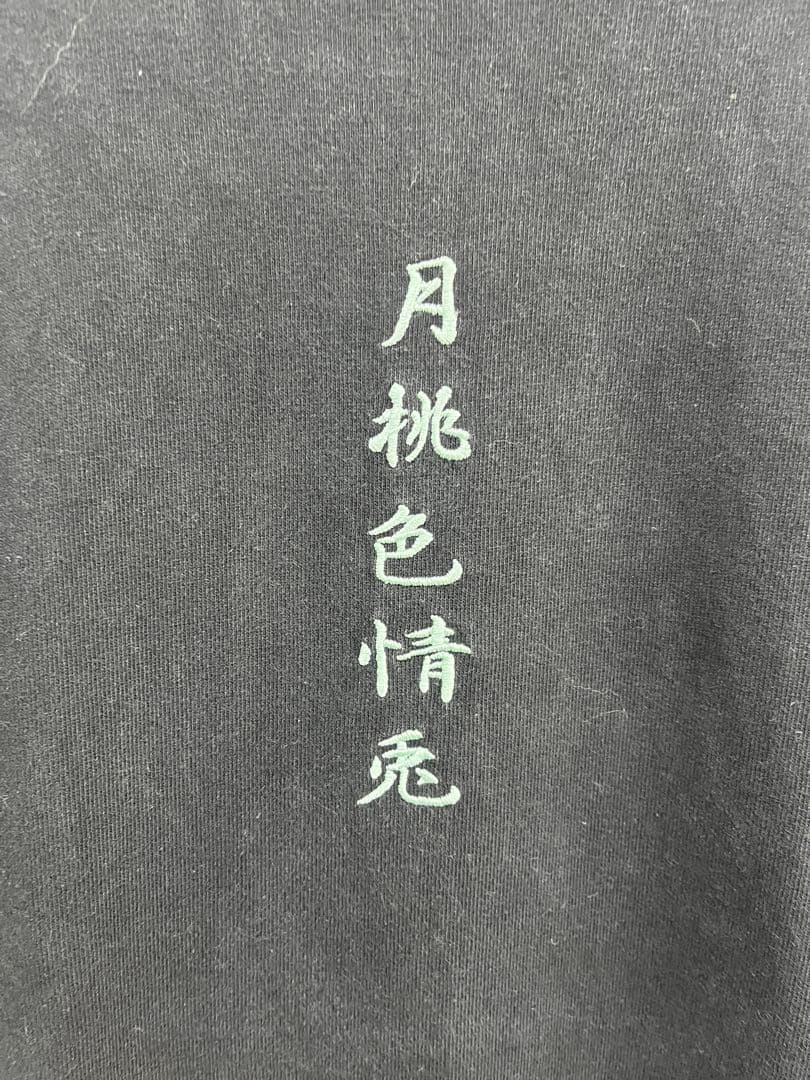 月桃色情兎